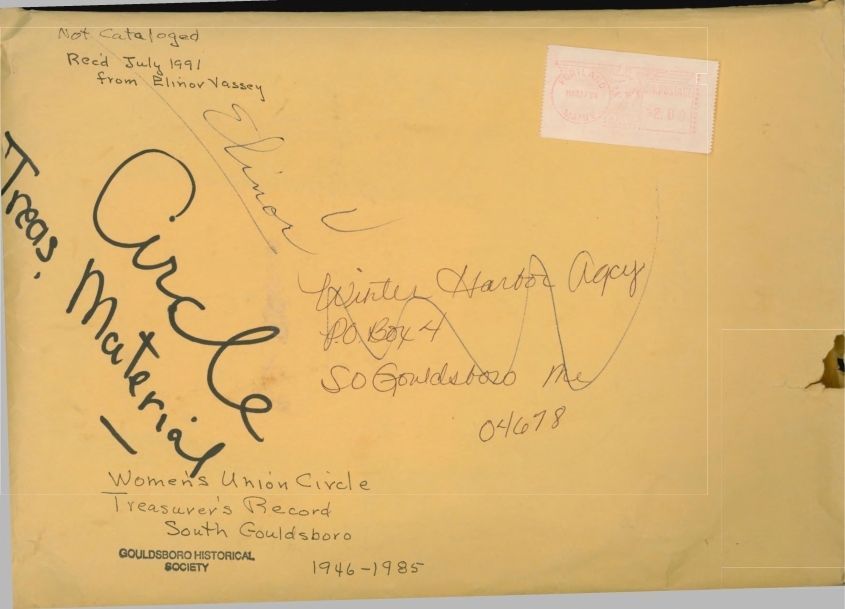 Not Cataloged
Rec'd July 1991
from Elinor Vassey
Elinor
Circle
Treas. Material
Winter Harbor Agcy
P.O Box 4
SO Gouldsboro Me
04678
Women's Union Circle
Treasurer's Record
South Gouldsboro
GOULDSBORO HISTORICAL
SOCIETY
1946-1985
PORTLAND